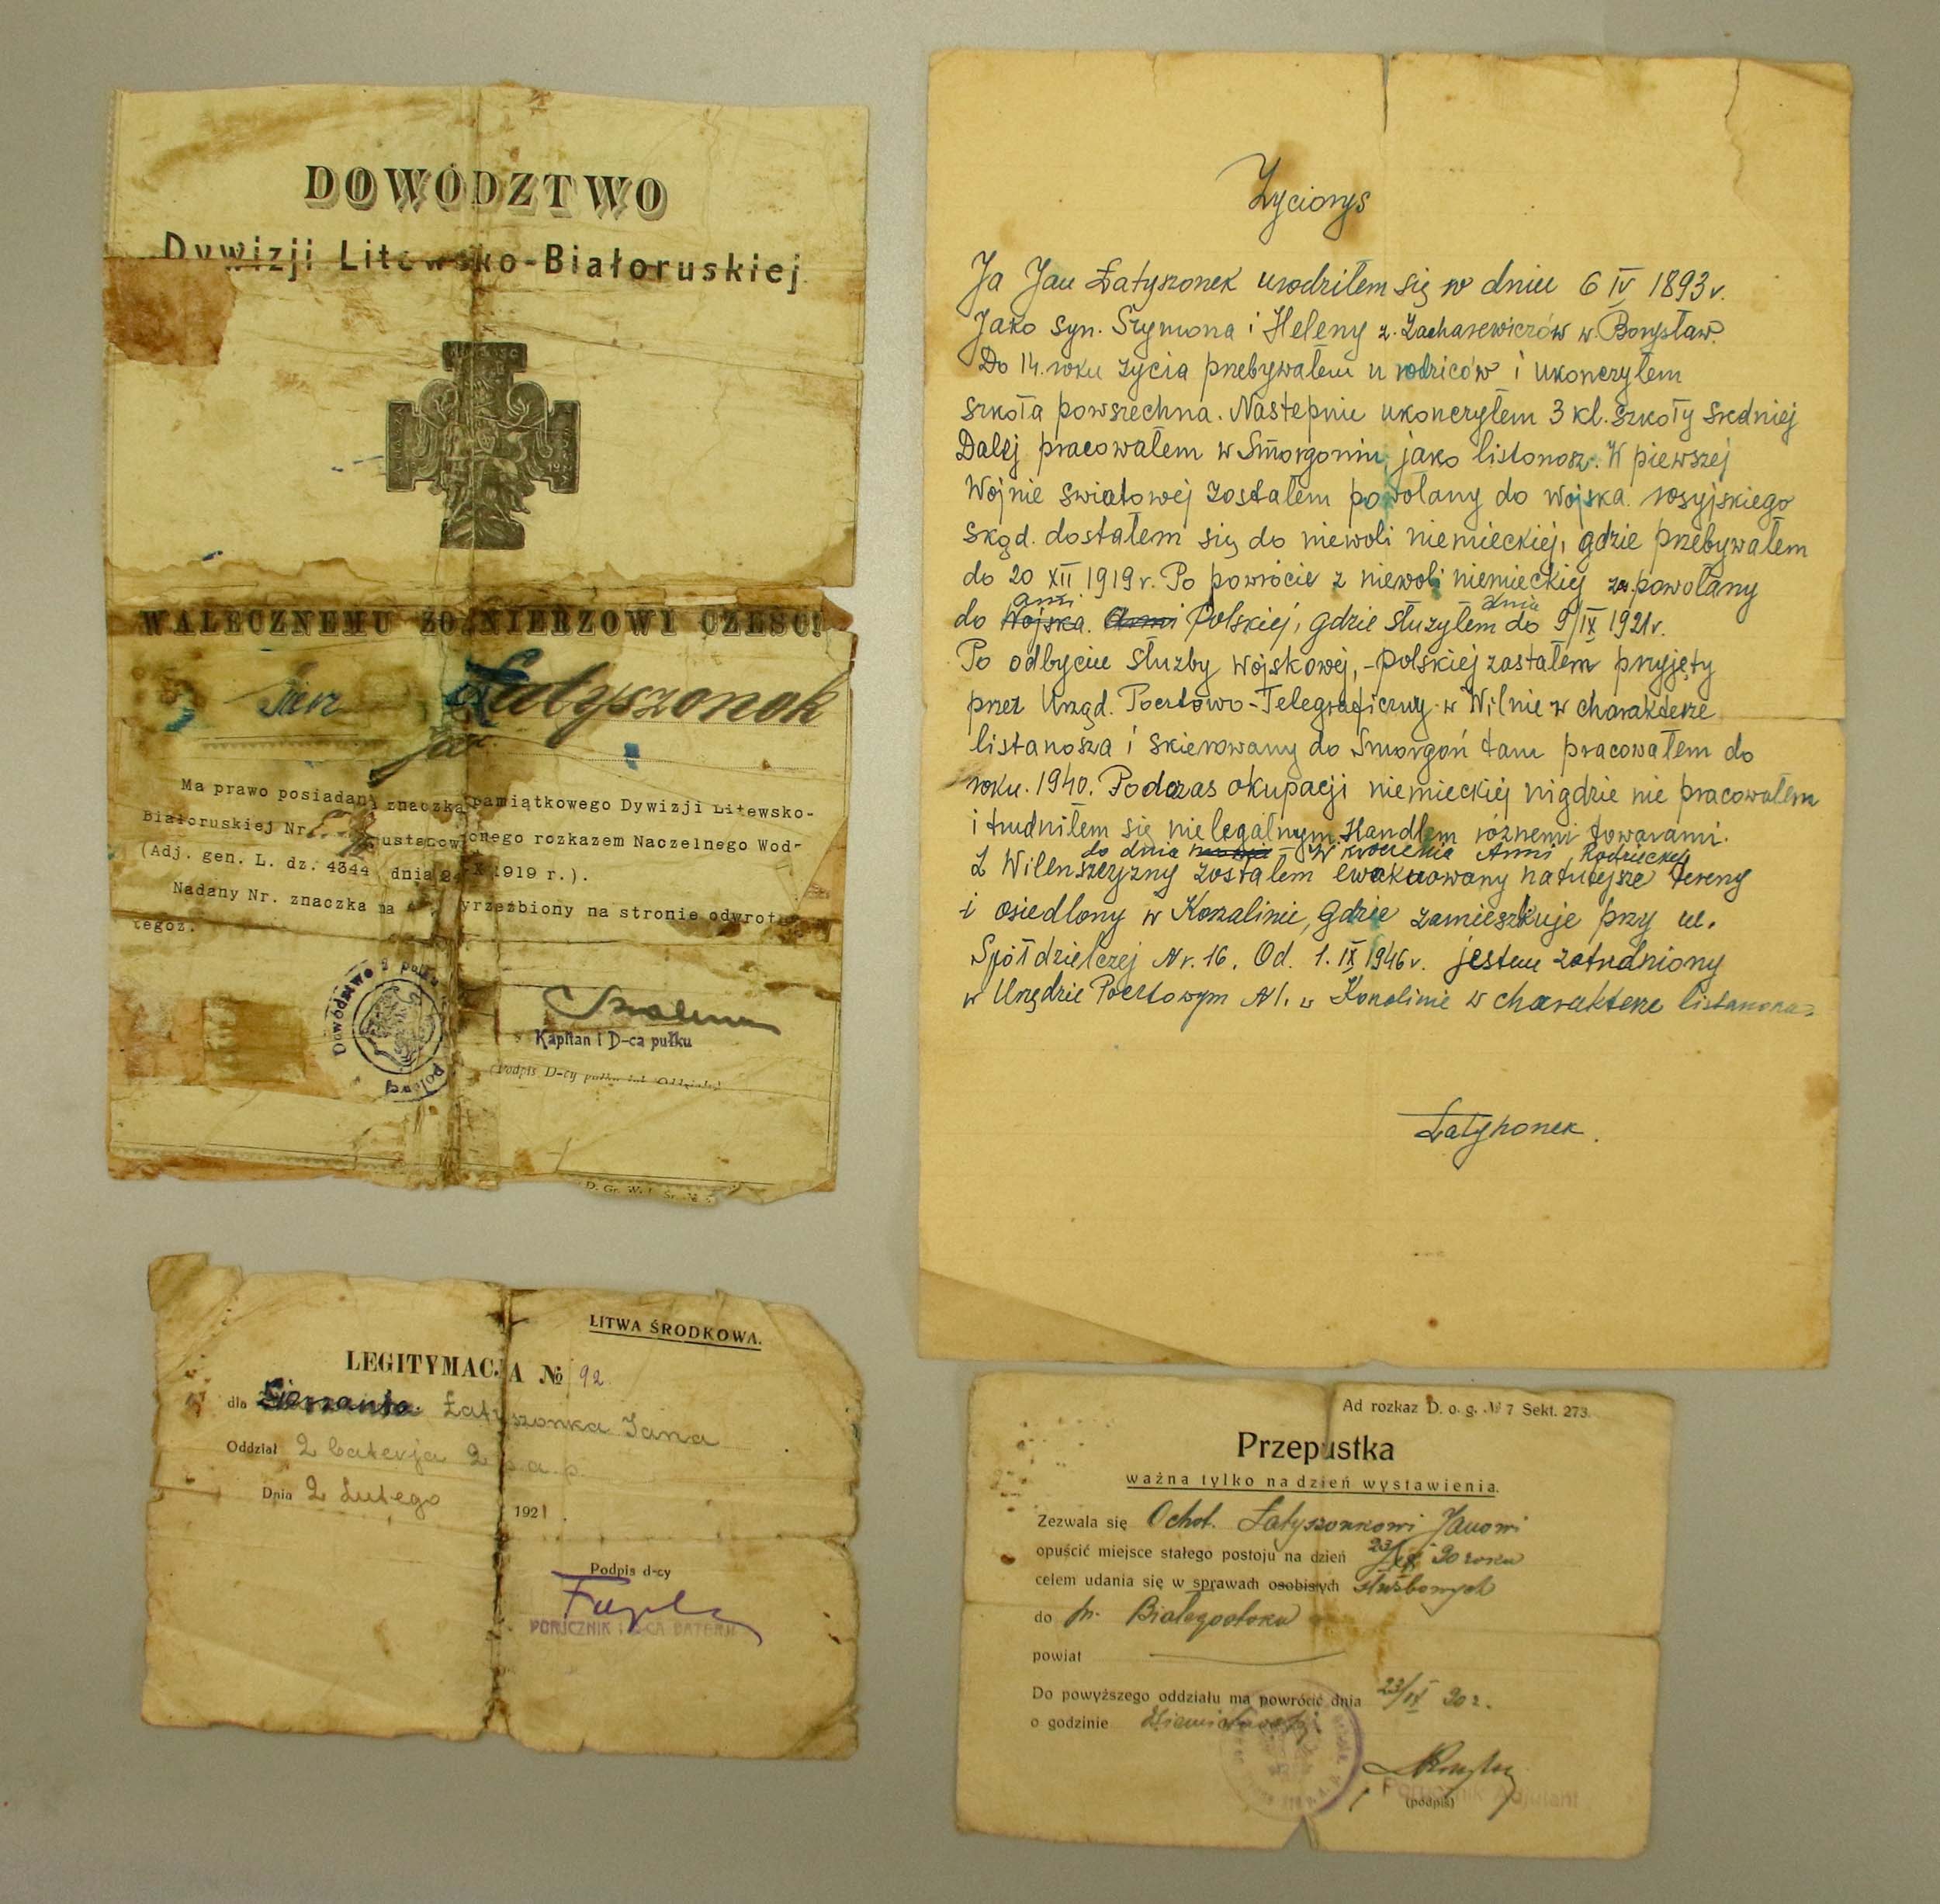 DOWÓDZTWO
Dywizji Litewsko-Białoruskiej
WALECZNEMU ŻOŁNIERZOWI CZEŚĆ!
Łatyszonok
Jan
Ma prawo posiadania znaczka pamiątkowego Dywizji Litewsko-
Białoruskiej Nr. ustanowionego rozkazem Naczelnego Wod-
(Adj. gen. L. dz. 4344 dnia 1919 r.).
Nadany Nr. znaczka ma wyrzeźbiony na stronie odwrotnej
tegoż.
Dowództwo 2 pułku
polowej
Kapitan i D-ca pułku
(Podpis D-cy pułku lub Oddziału)
Życiorys
Ja Jan Łatyszonek urodziłem się w dniu 6 IV 1893 r.
Jako syn. Szymona i Heleny z. Zacharewiczów w. Borysław.
Do 14. roku życia przebywałem u rodziców i ukonczyłem
szkoła powszechna. Nastepnie ukonczyłem 3 kl. szkoły sredniej
Dalej pracowałem w Smorgoniu jako listonosz. W piewszej
Wojnie swiatowej zostałem powołany do wojska. rosyjskiego
skąd. dostałem się do niewoli niemieckiej, gdzie przebywałem
do 20 XII 1919 r. Po powrocie z niewoli niemieckiej zo. powołany
do Wojska. Armi Polskiej, gdzie służyłem do dnia 9/IX 1921 r.
Po odbyciu służby wojskowej, - polskiej zastałem przyjęty
przez Urząd. Pocztowo-Telegraficzny w Wilnie w charakterze
listanosza i skierowany do Smorgoń tam pracowałem do
roku. 1940. Podczas okupacji niemieckiej nigdzie nie pracowałem
i trudniłem się nielegalnym Handlem różnemi towarami.
do dnia w kroczenia Armi, Radzieckej
Z Wilenszczyzny zostałem ewakuowany natutejsze tereny
i osiedlony w Koszalinie, gdzie zamieszkuje przy ul.
Spółdzielczej Nr. 16. Od. 1. IX 1946 r. jestem zatrudniony
w Urzędzie Pocztowym N 1. w Koszalinie w charakterze listanosza
Łatyszonek.
LITWA ŚRODKOWA.
LEGITYMACJA № 92
dla Łatyszonka Jana
Oddział 2 baterja 2 p. a. p.
Dnia 2 Lutego 1921.
Podpis d-cy
PORUCZNIK I D-CA BATERJI
Ad rozkaz D. o. g. № 7 Sekt. 273.
Przepustka
ważna tylko na dzień wystawienia.
Zezwala się Ochot. Łatyszonkowi Janowi
opuścić miejsce stałego postoju na dzień 23/IX 20 roku
celem udania się w sprawach osobistych służbowych
do m. Białegostoku
powiat
Do powyższego oddziału ma powrócić dnia 23/IX 20 r.
o godzinie
Porucznik Adjutant
(podpis)